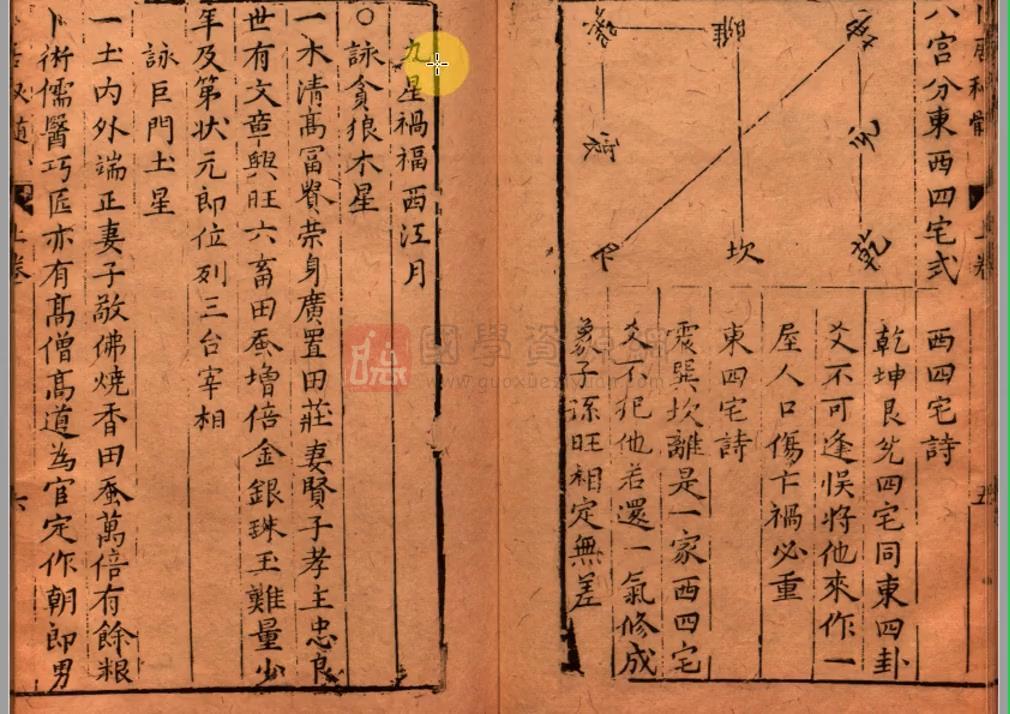 八宮分東西四宅式
乾
坎
艮
震
西四宅詩
乾坤艮兊四宅同東四卦
爻不可逢悮將他來作一
屋人口傷亡禍必重
東四宅詩
震巽坎離是一家西四宅
爻不犯他若還一氣修成
象子孫旺相定無差
九星禍福西江月
○詠貪狼木星
一木清髙冨貴荣身廣置田莊妻賢子孝主忠良
世有文章興旺六畜田蚕增倍金銀珠玉難量少
年及第状元郎位列三台宰相
詠巨門土星
一土内外端正妻子敬佛燒香田蚕萬倍有餘粮
卜術儒醫巧匠亦有髙僧髙道為官定作朝郎男
上卷
六
國學資源網
www.guoxueziyuan.com